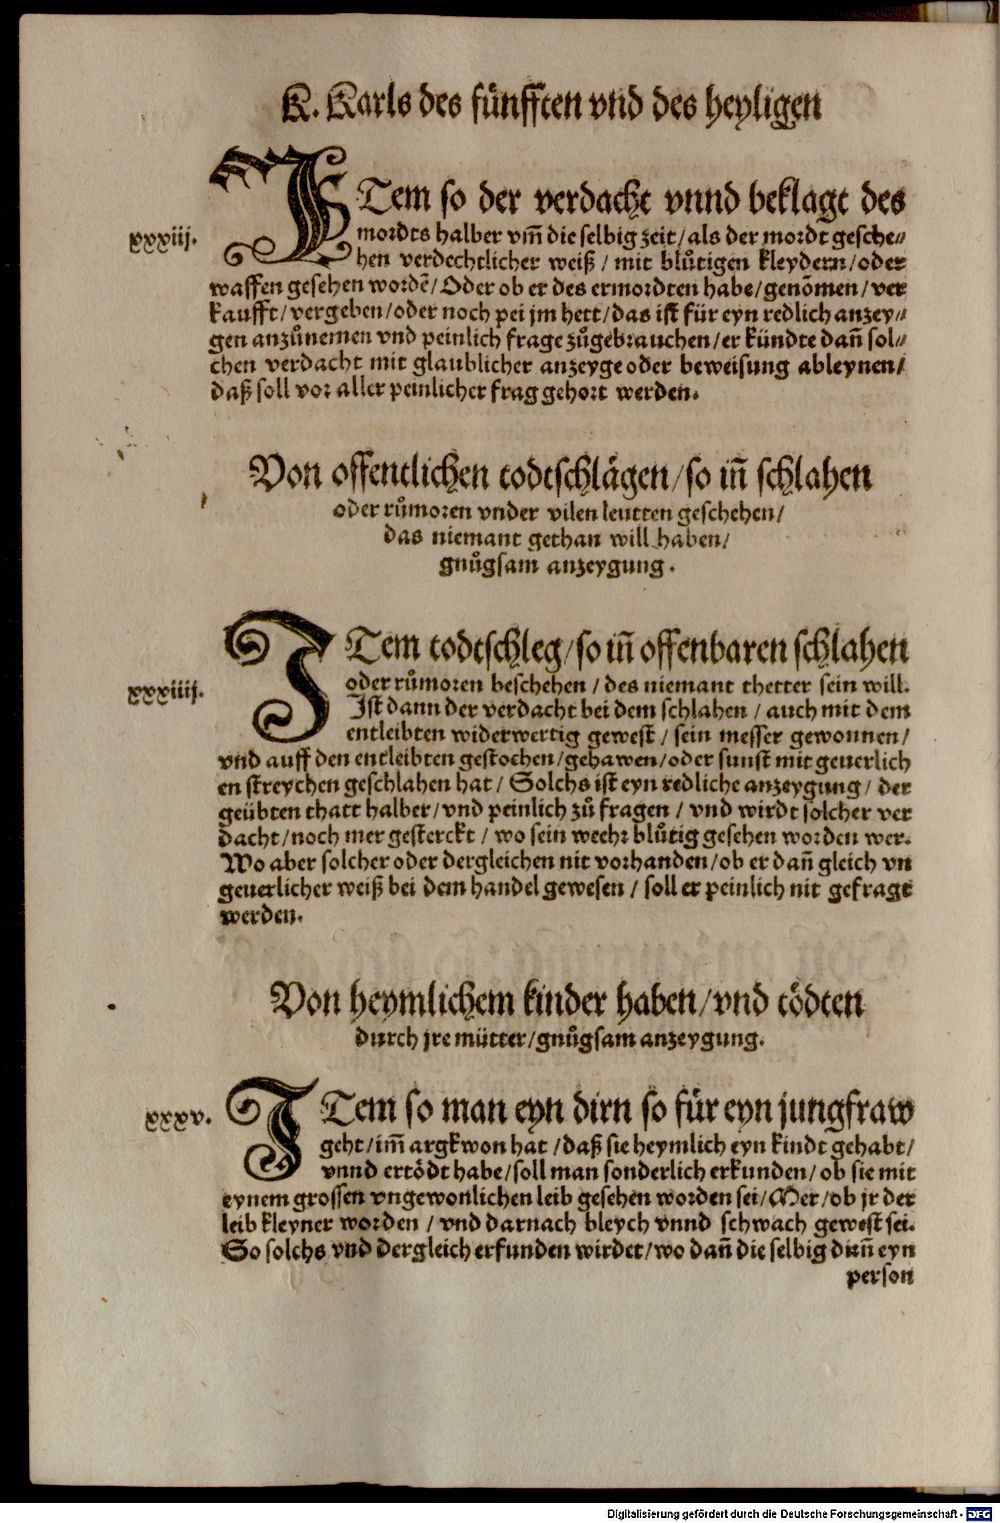 K. Karls des fünfften vnd des heyligen
xxxiij.
ITem so der verdacht vnnd beklagt des
mordts halber vm̃ die selbig zeit / als der mordt gesche⸗
hen verdechtlicher weiß / mit blůtigen kleydern / oder
waffen gesehen wordẽ / Oder ob er des ermordten habe / genõmen / ver
kaufft / vergeben / oder noch pei jm hett / das ist für eyn redlich anzey⸗
gen anzůnemen vnd peinlich frage zůgebrauchen / er kündte dañ sol⸗
chen verdacht mit glaublicher anzeyge oder beweisung ableynen /
daß soll vor aller peinlicher frag gehort werden.
Von offentlichen todtschlägen / so iñ schlahen
oder růmoren vnder vilen leutten geschehen /
das niemant gethan will haben /
gnůgsam anzeygung.
xxxiiij.
ITem todtschleg / so iñ offenbaren schlahen
oder růmoren beschehen / des niemant thetter sein will.
Ist dann der verdacht bei dem schlahen / auch mit dem
entleibten widerwertig gewest / sein messer gewonnen /
vnd auff den entleibten gestochen / gehawen / oder sunst mit geuerlich
en streychen geschlahen hat / Solchs ist eyn redliche anzeygung / der
geübten thatt halber / vnd peinlich zů fragen / vnd wirdt solcher ver
dacht / noch mer gesterckt / wo sein weehr blůtig gesehen worden wer.
Wo aber solcher oder dergleichen nit vorhanden / ob er dañ gleich vn
geuerlicher weiß bei dem handel gewesen / soll er peinlich nit gefragt
werden.
Von heymlichem kinder haben / vnd tödten
durch jre mütter / gnůgsam anzeygung.
xxxv.
ITem so man eyn dirn so für eyn jungfraw
geht / im̃ argkwon hat / daß sie heymlich eyn kindt gehabt /
vnnd ertödt habe / soll man sonderlich erkunden / ob sie mit
eynem grossen vngewonlichen leib gesehen worden sei / Mer / ob jr der
leib kleyner worden / vnd darnach bleych vnnd schwach gewest sei.
So solchs vnd dergleich erfunden wirdet / wo dañ die selbig dirñ eyn
person
Digitalisierung gefördert durch die Deutsche Forschungsgemeinschaft - DFG